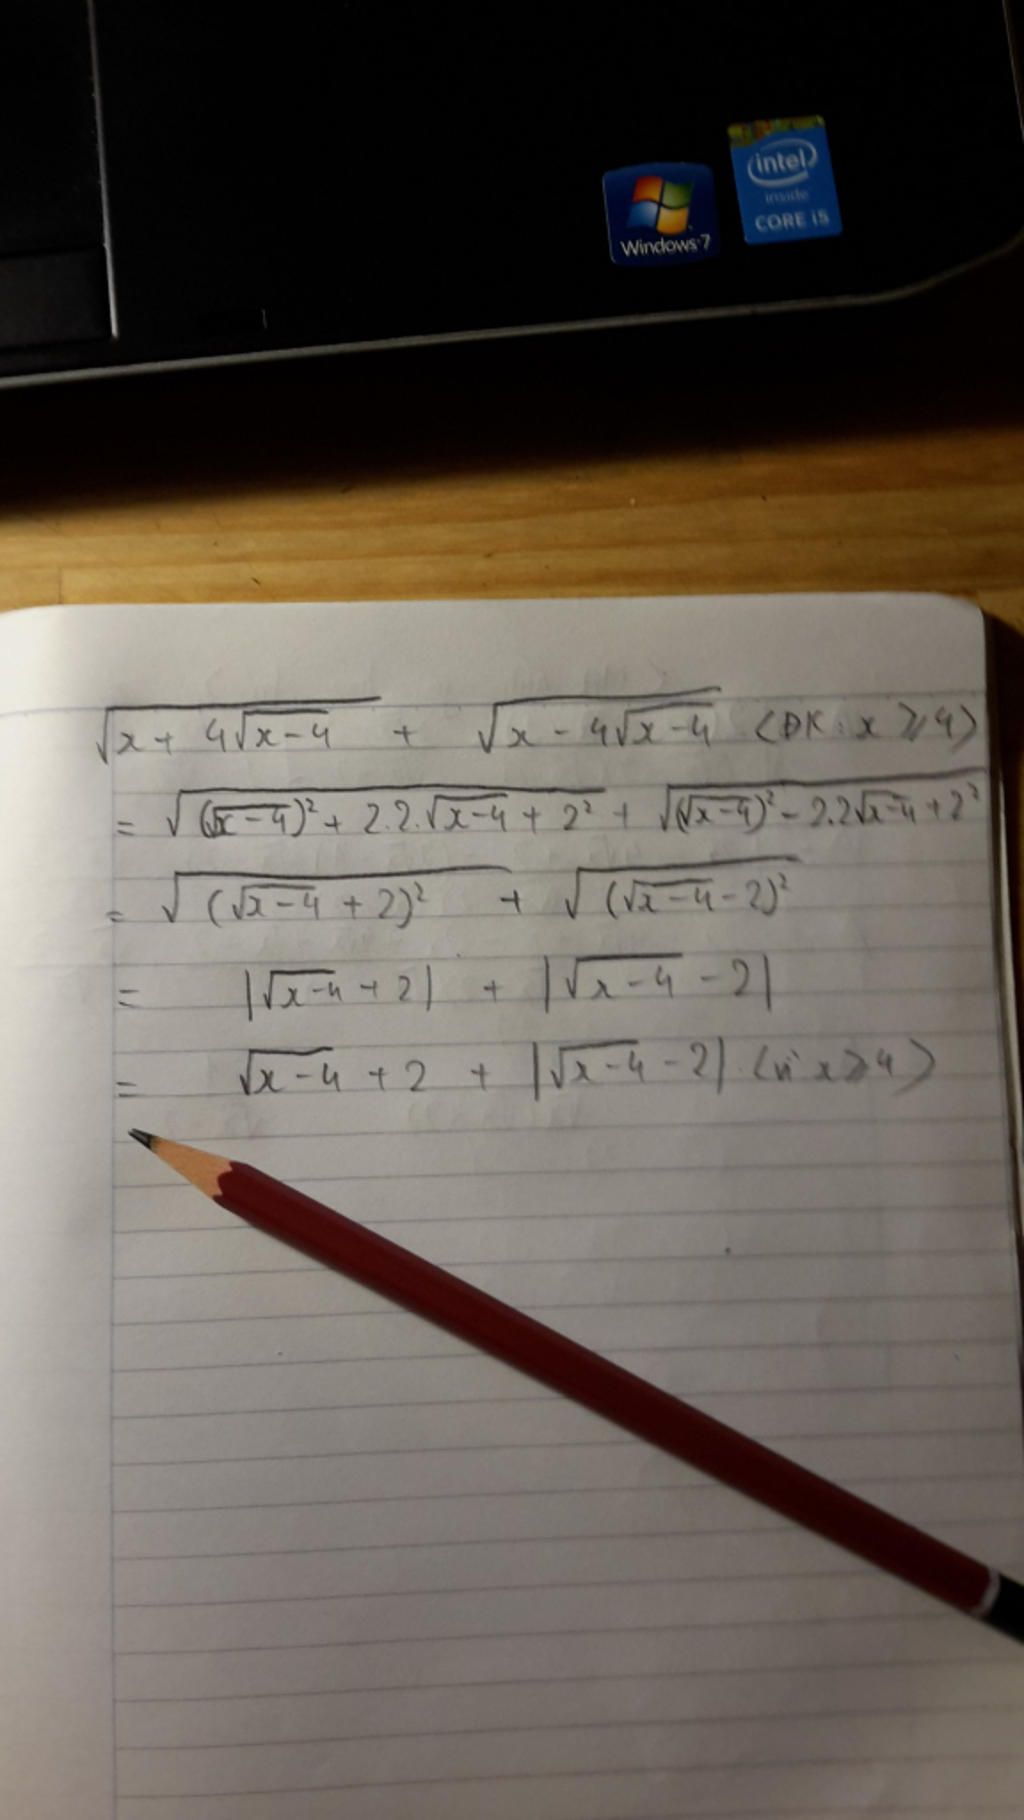 Windows 7
intel
inside
CORE i5
√(x + 4√(x-4)) + √(x - 4√(x-4)) (ĐK: x ⩾ 4)
= √((√(x-4))² + 2.2.√(x-4) + 2²) + √((√(x-4))² - 2.2√(x-4) + 2²)
= √((√(x-4) + 2)²) + √((√(x-4) - 2)²)
= |√(x-4) + 2| + |√(x-4) - 2|
= √(x-4) + 2 + |√(x-4) - 2| (vì x ⩾ 4)